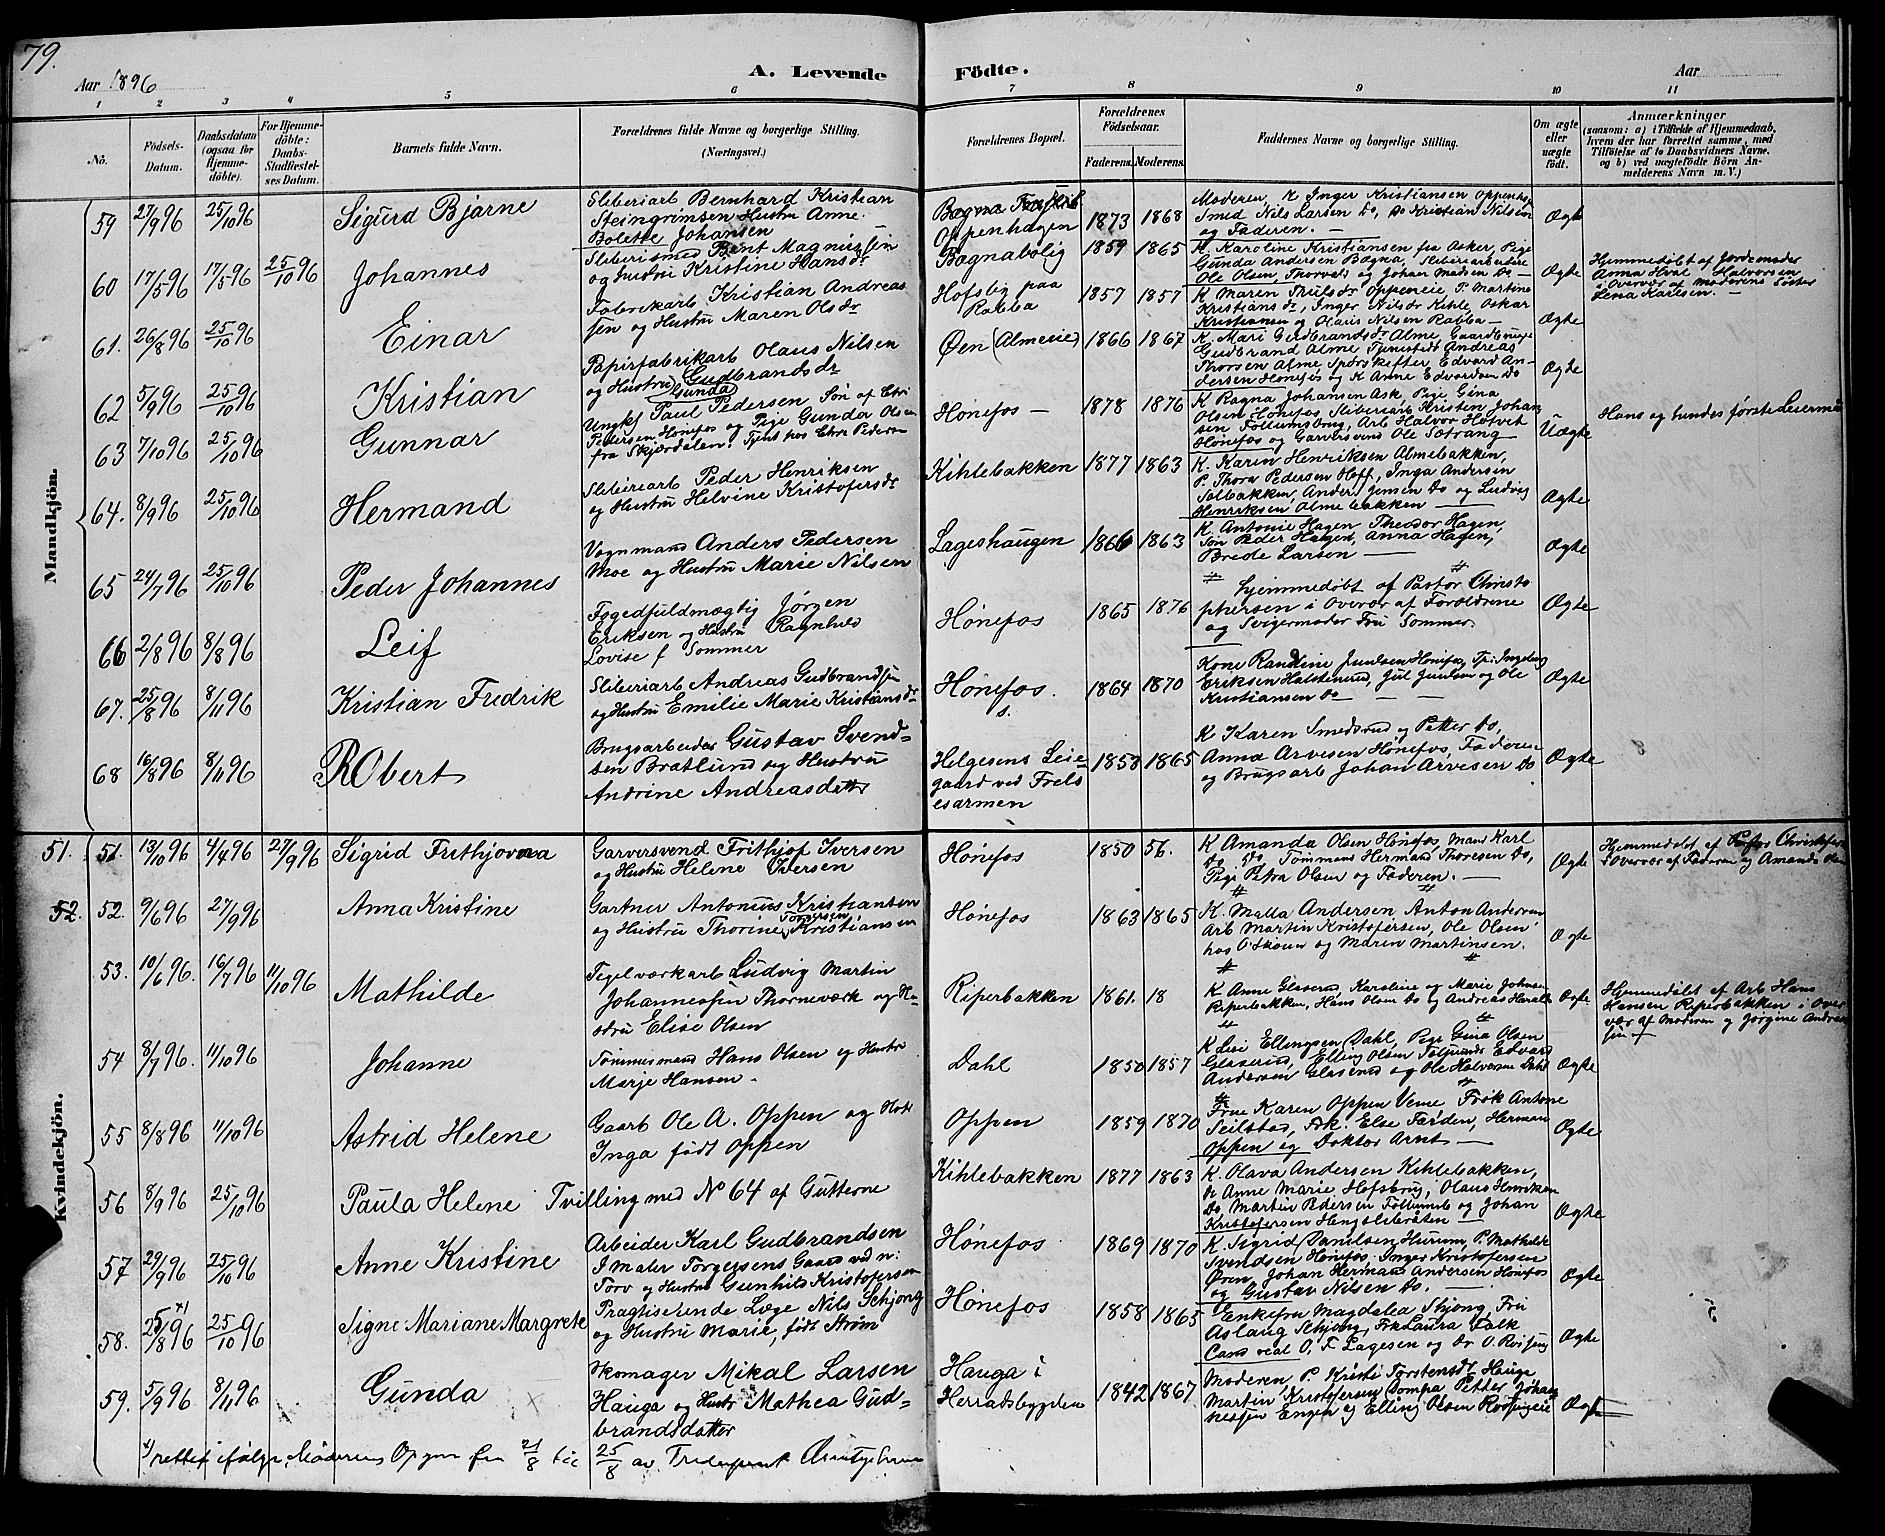 79.
Aar 1896
A. Levende Födte.
Aar
1 2 3 4 5 6 7 8 9 10 11
No.
Födsels-Datum.
Daabsdatum (ogsaa for Hjemme-döbte).
For Hjemme-döbte: Daabs-Stadfæstel-ses Datum.
Barnets fulde Navn.
Forældrenes fulde Navne og borgerlige Stilling. (Næringsvei.)
Forældrenes Bopæl.
Forældrenes Födselsaar.
Faderens. Moderens.
Faddernes Navne og borgerlige Stilling.
Om ægte eller uægte födt.
Anmærkninger
(saasom: a) i Tilfælde af Hjemmedaab, hvem der har forrettet samme, med Tilföielse af to Daabsvidners Navne, og b) ved uægtefödte Börn An-melderens Navn m. V.)
Mandkjön.
59 27/9 96 25/10 96 Sigurd Bjarne
Sliberiarb Bernhard Kristian
Steingrimsen Hustru Anne
Bolette Johansen
Bægna
Oppenhagen
1873 1868
Moderen, K Inger Kristiansen Oppenhag
Smed Nils Larsen Do, Do Kristian Nilsen
og Faderen. —
Ægte
60 17/5 96 17/5 96 25/10 96 Johannes
Sliberismed Bent Magnussen
og Hustru Kristine Hansdr
Bægnabolig
1859 1865
K. Karoline Kristiansen fra Asker, Pige
Gunda Andersen Bægna, Sliberiarbeidere
Ole Olsen, Thorvald og Johan Madsen Do —
Ægte
Hjemmedøbt af Jordemoder
Anna Hval Halvorsen
i Overvær af Moderens Søster
Lena Karlsen. —
61. 26/8 96 25/10 96 Einar
Fabrikarb Kristian Andreas
sen og Hustru Maren Olsdr
Hofsbg paa
Rabba
1857 1857
K Maren Trulsdr Oppeneie P. Martine
Kristiansdr, Inger Nilsdr Kihle, Oskar
Kristiansen og Olaus Nilsen Rabba —
Ægte
62 5/9 96 25/10 96 Kristian
Papirfabrikarb Olaus Nilsen
og Hustru Gunda Gudbrandsdr
Øen (Almeeie)
1866 1867
K. Mari Gudbrandsdr Alme, Gaardbruger
Gudbrand Alme Tjenestedr Andreas
Thorsen Alme Sporskifter Edvard An-
dersen Hønefos og K Anne Edvardsen Do
Ægte
63 7/10 96 25/10 96 Gunnar
Ungkf Paul Pedersen Søn af Chr.
Pedersen Hønefos og Pige Gunda Olsen
fra Skjærdalen. Tjent hos Chr. Pedersen
Hønefos —
1878 1876
K Ragna Johansen Ask, Pige Gina
Olsen Hønefos, Sliberiarb Kristen Johan
sen Follumsbrug, Arb Halvor Hofvik
Hønefos og Garversvend Ole Sætrang
Uægte
Hans og hendes første Leiermaal
64. 8/9 96 25/10 96 Hermand
Sliberiarb Peder Henriksen
og Hustru Helvine Kristofersdr
Kihlebakken
1877 1863
K. Karen Henriksen Almebakken,
P. Thora Pedersen Hoff, Inga Andersen
Solbakken, Anders Jensen Do og Ludvig
Henriksen Almebakken —
Ægte
65 24/7 96 25/10 96 Peder Johannes
Vognmand Anders Pedersen
Moe og Hustru Marie Nilsen
Lageshaugen
1866 1863
K. Antonie Hagen Theodor Hagen,
Søn Peder Hagen, Anna Hagen,
Brede Larsen —
Ægte
66 2/8 96 8/8 96 Leif
Fogedfuldmægtig Jørgen
Eriksen og Hustru Ragnhild
Lovise f Sommer
Hønefos
1865 1876
Hjemmedøbt af Pastor Christo
phersen i Overvær af Forældrene
og Svigermoder Fru Sommer.
Ægte
67. 25/8 96 8/11 96 Kristian Fredrik
Sliberiarb Andreas Gudbrandsen
og Hustru Emilie Marie Kristiansdr
Hønefos.
s.
1864 1870
Kone Randine Juulsen Hønefos, Tp. Ingeborg
Eriksen Halstenrud, Jul Juulsen og Ole
Kristiansen Do —
Ægte
68 16/8 96 8/11 96 RObert
Brugsarbeider Gustav Svend-
sen Bratlund og Hustru
Andrine Andreasdatter
Helgesens Leie-
gaard ved Frels
esarmen
1858 1865
K Karen Smedsrud og Petter Do,
Anna Arvesen Hønefos, Faderen
og Brugsarb Johan Arvesen Do
Ægte
Kvindekjön.
51. 51. 13/10 96 4/4 96 27/9 96 Sigrid Frithjovna
Garversvend Frithjof Iversen
og Hustru Helene Iversen
Hønefos
1850 56.
K Amanda Olsen Hønefos, Mans Karl
Do Do, Tømmermand Herman Thoresen Do,
Pige Petra Olsen og Faderen. —
Ægte
Hjemmedøbt af Pastor Christofersen
i Overvær af Faderen og Amanda Olsen
52. 52. 9/6 96 27/9 96 Anna Kristine
Gartner Antonius Kristiansen
og Hustru Thorine Torgersen Kristiansen
Hønefos
1863 1865
K. Malla Andersen, Anton Andersen
Arb Martin Kristofersen, Ole Olsen
hos O. Skoien og Maren Martinsen.
Ægte
53. 10/6 96. 16/7 96 11/10 96 Mathilde
Tegelværkarb Ludvig Martin
Johannessen Thorneværk og Hu-
stru Elise Olsen
Riperbakken
1861. 18
K Anne Glaserud, Karoline og Marie Johnsen
Riperbakken, Hans Olsen Do og Andreas Harald
Ægte
Hjemmedøbt af Arb Hans
Hansen Riperbakken i Over
vær af Moderen og Jørgine Andreas
sen
54 8/7 96. 11/10 96 Johanne
Tømmermand Hans Olsen og Hustru
Marje Hansen.
Dahl
1850 1857
K Lise Ellingsen Dahl, Pige Gina Olsen
Glaserud, Elling Olsen Follumsb Edvard
Andersen Glaserud og Ole Halvorsen Dahl
Ægte
55 8/8 96 11/10 96 Astrid Helene
Gaarb Ole A. Oppen og Hust
Inga født Oppen
Oppen
1859 1870
Frue Karen Oppen Veme Frøk Antone
Seilstad, Frk. Else Færden, Herman
Oppen og Doktor Arnt —
Ægte
56 8/9 96 25/10 96 Paula Helene Tvilling med No 64 af Gutterne
Kihlebakken
1877 1863
K. Olava Andersen Kihlebakken,
do Anne Marie Hofsbrug, Olaus Henriksen
Do Martin Pedersen Follumsb og Johan
Kristofersen Hengsleberaaten —
Ægte
57 29/9 96 25/10 96 Anne Kristine
Arbeider Karl Gudbrandsen
I Maler Torgersens Gaard ved n:
Torv og Hustru Gunhild Kristofersen
Hønefos
1869 1870
K. Sigrid Danielsen Hurum, P. Mathilde
Svendsen Hønefos. Inger Kristofersen
Øren, Johan Herman Andersen Hønefos
og Gustav Nilsen Do.
Ægte
58. 25/8 96 x) 25/10 96 Signe Mariane Margrete
Pragtiserende Læge Nils Schjong
og Hustru Marie, født Strøm
Hønefos
1858 1865
Enkefru Magdalea Skjong, Fru
Aslaug Schjong, Frk Laura Falk
Cand real O. F. Lagesen og Dr O. Roisjen
Ægte
59. 5/9 96 8/11 96 Gunda
Skomager Mikal Larsen
Hauga og Hustr Mathea Gud-
brandsdatter
Hauga i
Heradsbygden
1842 1867
Moderen P. Kristi Torstensdr Hauge,
Martin Kristofersen Dompa Petter Johan
nessen Engen og Elling Olsen Roisengeie
Ægte
x) rettet ifølge Moderens Opgave fra 21/8 til 25/8 av